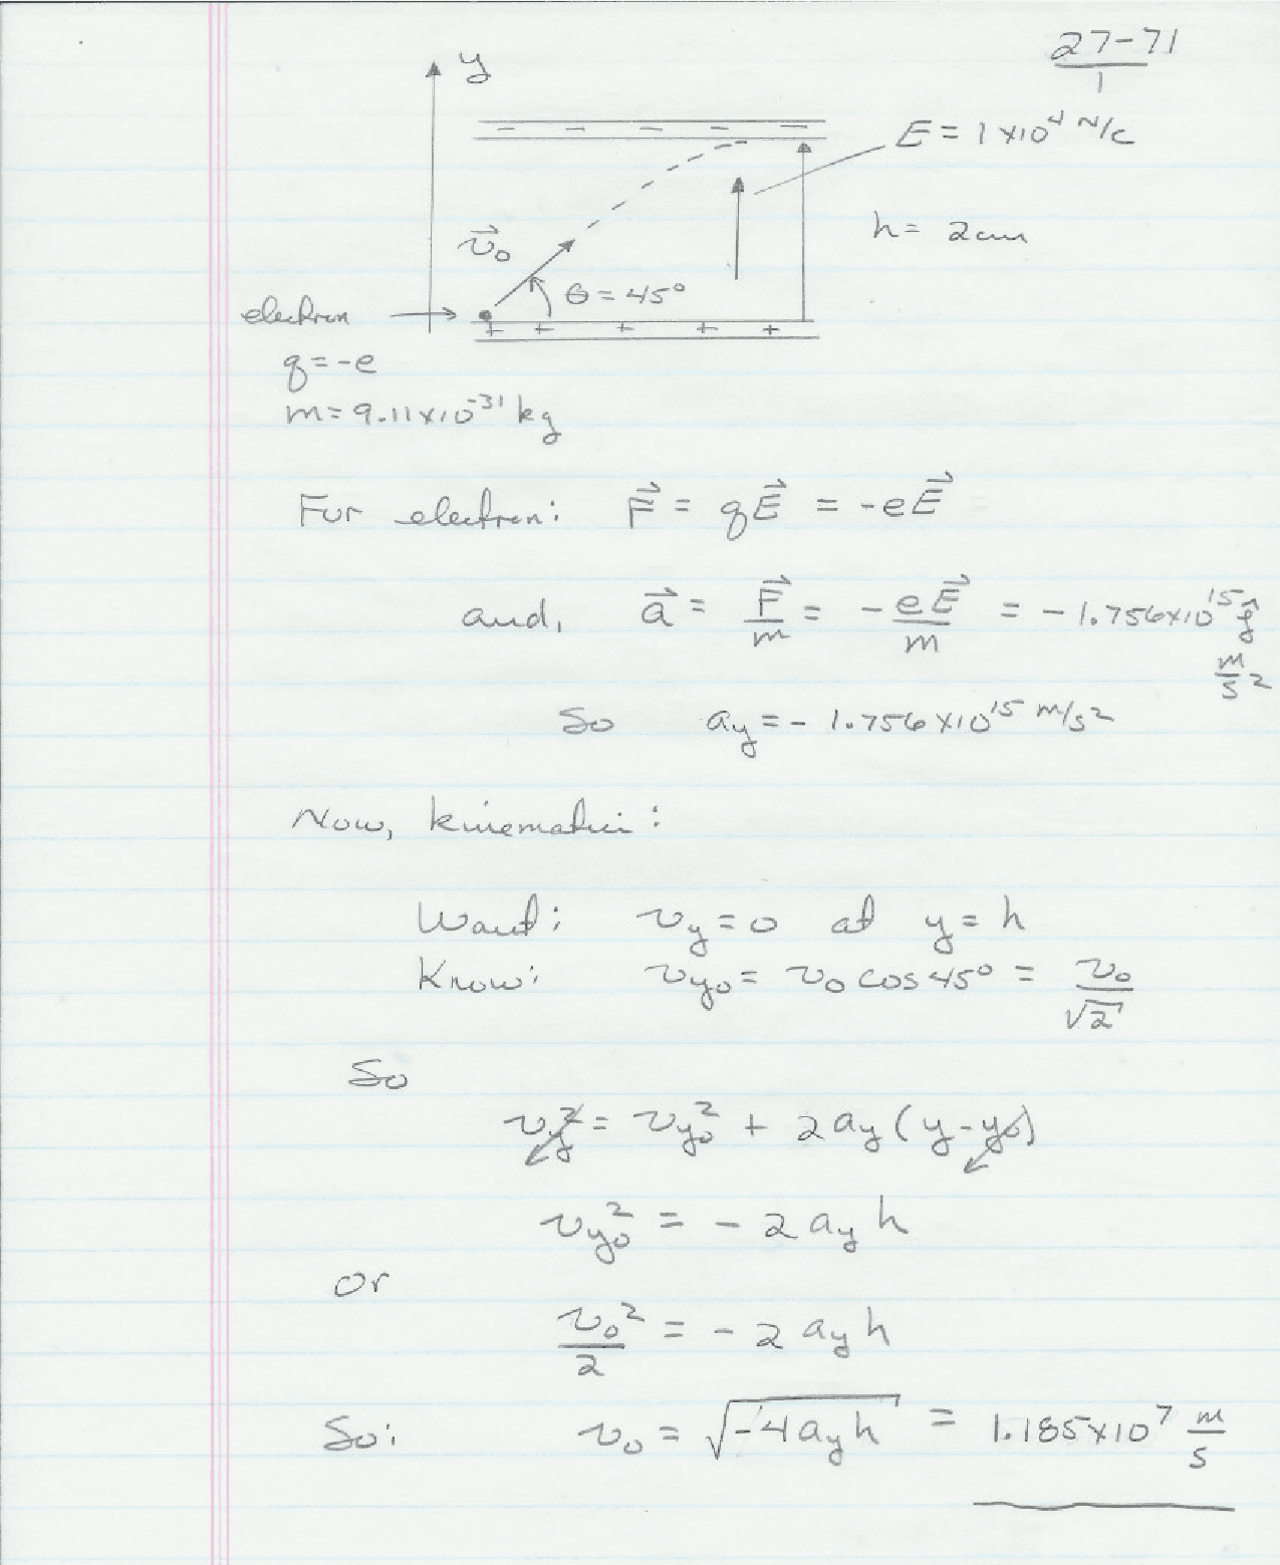 27-71
1
y
- - - - -
E = 1×10⁴ N/C
h = 2cm
v⃗₀
θ = 45°
electron
+ + + + +
q = -e
m = 9.11×10⁻³¹ kg
For electron: F⃗ = qE⃗ = -eE⃗
and, a⃗ = F⃗/m = -eE⃗/m = -1.756×10¹⁵ ĵ m/s²
So a_y = -1.756×10¹⁵ m/s²
Now, kinematics:
Want: v_y = 0 at y = h
Know: v_y₀ = v₀ cos 45° = v₀/√2
So
v_y² = v_y₀² + 2a_y(y-y₀)
v_y₀² = -2a_y h
or
v₀²/2 = -2a_y h
So: v₀ = √(-4a_y h) = 1.185×10⁷ m/s